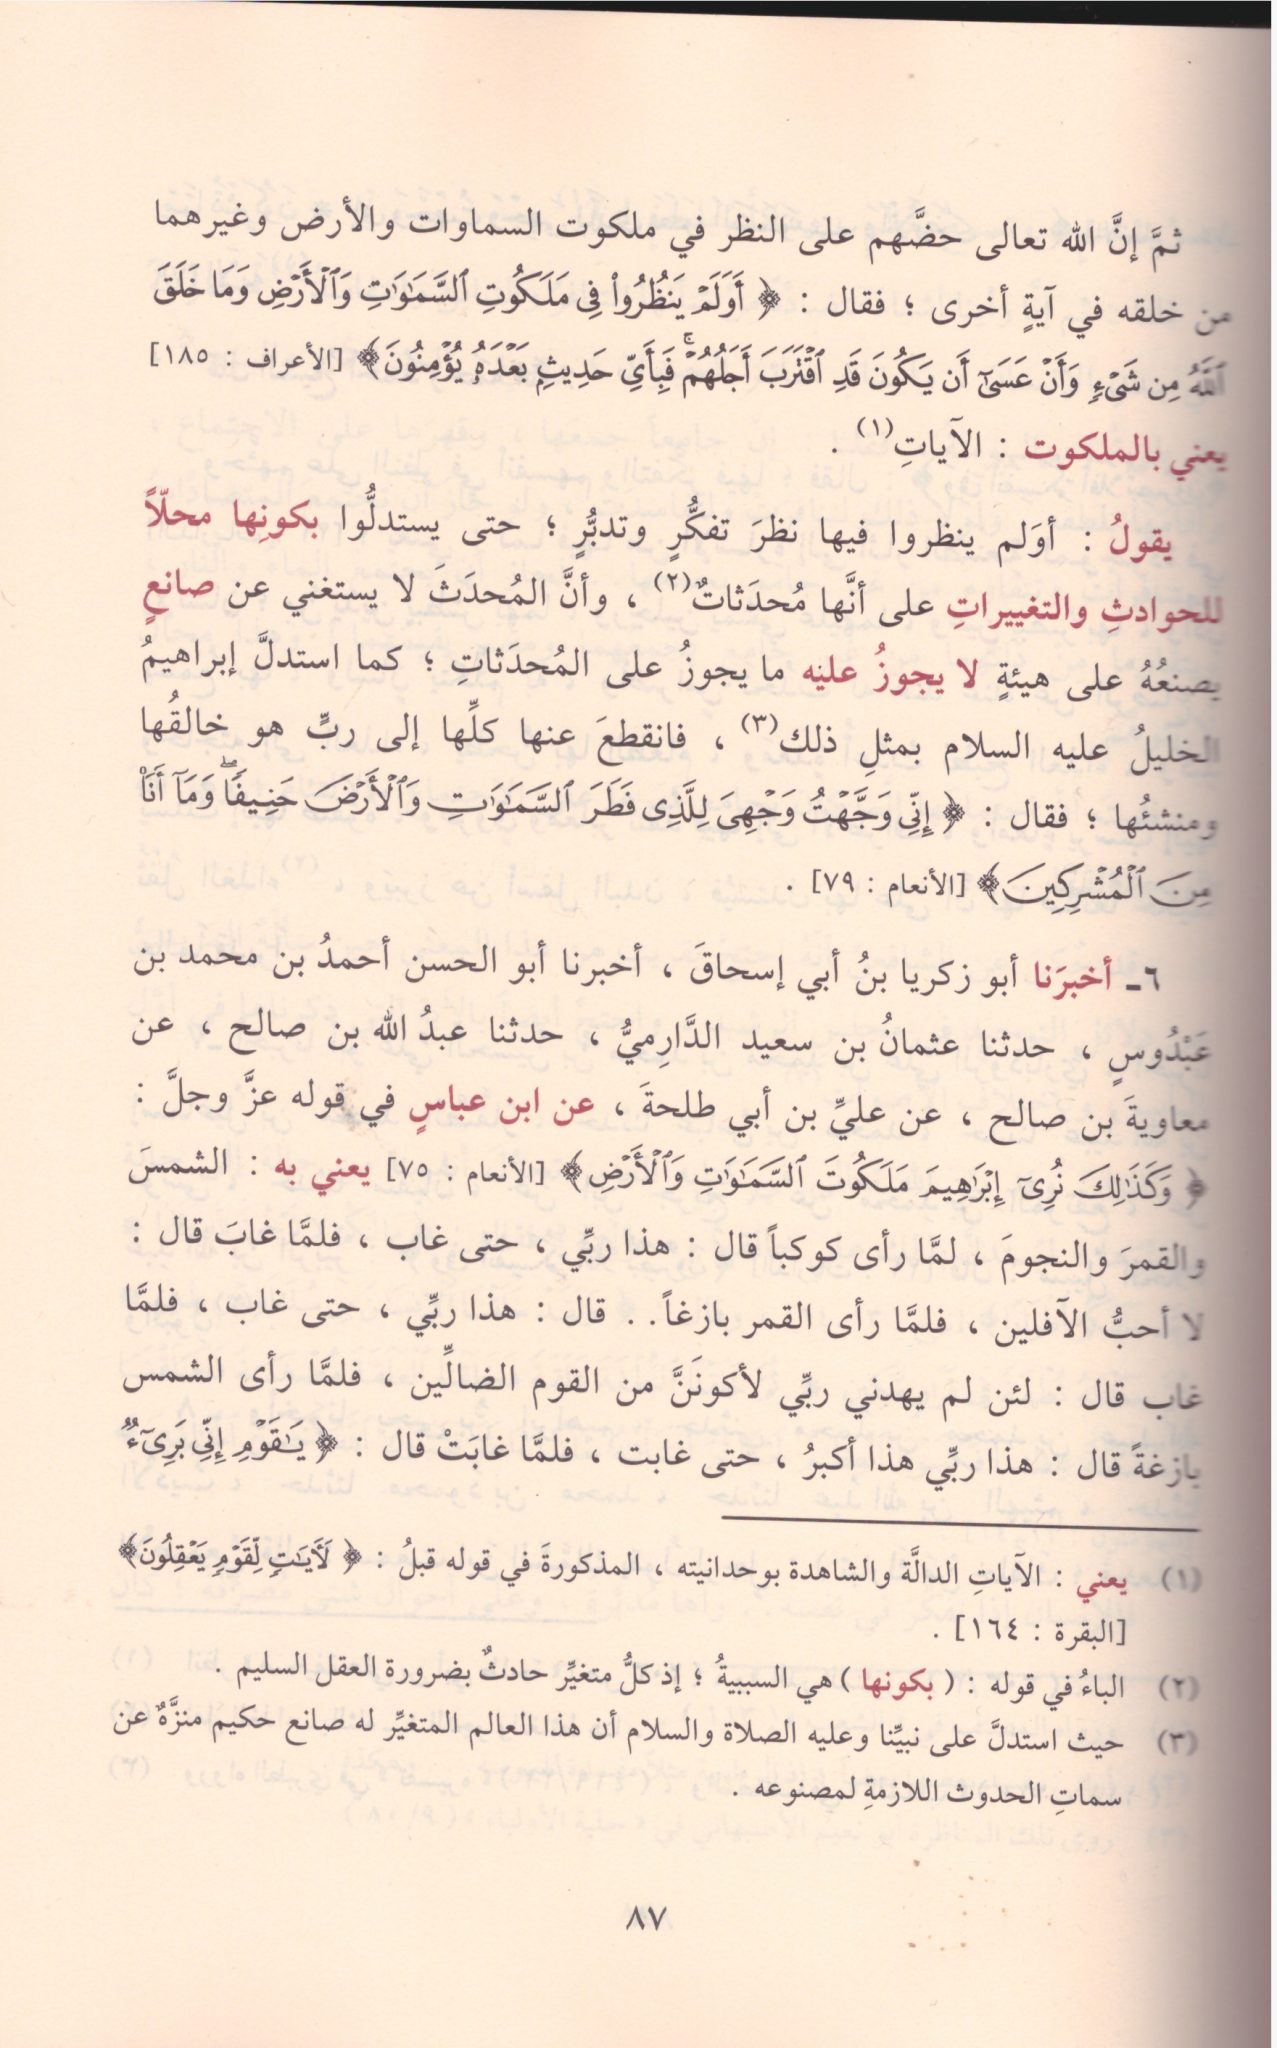 ثمَّ إنَّ الله تعالى حضَّهم على النظر في ملكوت السماوات والأرض وغيرهما
من خلقه في آيةٍ أخرى ؛ فقال : ﴿ أَوَلَمْ يَنظُرُواْ فِى مَلَكُوتِ ٱلسَّمَٰوَٰتِ وَٱلْأَرْضِ وَمَا خَلَقَ
ٱللَّهُ مِن شَىْءٍ وَأَنْ عَسَىٰٓ أَن يَكُونَ قَدِ ٱقْتَرَبَ أَجَلُهُمْ ۖ فَبِأَىِّ حَدِيثٍۭ بَعْدَهُۥ يُؤْمِنُونَ﴾ [الأعراف : ١٨٥]
يعني بالملكوت : الآياتِ(١) .
يقولُ : أوَلم ينظروا فيها نظرَ تفكُّرٍ وتدبُّرٍ ؛ حتى يستدلُّوا بكونِها محلّاً
للحوادثِ والتغييراتِ على أنَّها مُحدَثاتٌ(٢) ، وأنَّ المُحدَثَ لا يستغني عن صانعٍ
يصنعُهُ على هيئةٍ لا يجوزُ عليه ما يجوزُ على المُحدَثاتِ ؛ كما استدلَّ إبراهيمُ
الخليلُ عليه السلام بمثلِ ذلك(٣) ، فانقطعَ عنها كلِّها إلى ربٍّ هو خالقُها
ومنشئُها ؛ فقال : ﴿ إِنِّى وَجَّهْتُ وَجْهِىَ لِلَّذِى فَطَرَ ٱلسَّمَٰوَٰتِ وَٱلْأَرْضَ حَنِيفًا ۖ وَمَآ أَنَا۠
مِنَ ٱلْمُشْرِكِينَ﴾ [الأنعام : ٧٩] .
٦ـ أخبرَنا أبو زكريا بنُ أبي إسحاقَ ، أخبرنا أبو الحسن أحمدُ بن محمد بن
عَبْدُوسٍ ، حدثنا عثمانُ بن سعيد الدَّارِميُّ ، حدثنا عبدُ الله بن صالح ، عن
معاويةَ بن صالح ، عن عليِّ بن أبي طلحةَ ، عن ابن عباسٍ في قوله عزَّ وجلَّ :
﴿ وَكَذَٰلِكَ نُرِىٓ إِبْرَٰهِيمَ مَلَكُوتَ ٱلسَّمَٰوَٰتِ وَٱلْأَرْضِ﴾ [الأنعام : ٧٥] يعني به : الشمسَ
والقمرَ والنجومَ ، لمَّا رأى كوكباً قال : هذا ربِّي ، حتى غاب ، فلمَّا غابَ قال :
لا أحبُّ الآفلين ، فلمَّا رأى القمر بازغاً.. قال : هذا ربِّي ، حتى غاب ، فلمَّا
غاب قال : لئن لم يهدني ربِّي لأكونَنَّ من القوم الضالِّين ، فلمَّا رأى الشمس
بازغةً قال : هذا ربِّي هذا أكبرُ ، حتى غابت ، فلمَّا غابَتْ قال : ﴿ يَٰقَوْمِ إِنِّى بَرِىٓءٌ
(١) يعني : الآياتِ الدالَّة والشاهدة بوحدانيته ، المذكورةَ في قوله قبلُ : ﴿ لَأَيَٰتٍ لِّقَوْمٍ يَعْقِلُونَ﴾
[البقرة : ١٦٤] .
(٢) الباءُ في قوله : ( بكونها ) هي السببيةُ ؛ إذ كلُّ متغيِّر حادثٌ بضرورة العقل السليم .
(٣) حيث استدلَّ على نبيِّنا وعليه الصلاة والسلام أن هذا العالم المتغيِّر له صانع حكيم منزَّهٌ عن
سماتِ الحدوث اللازمةِ لمصنوعه .
٨٧